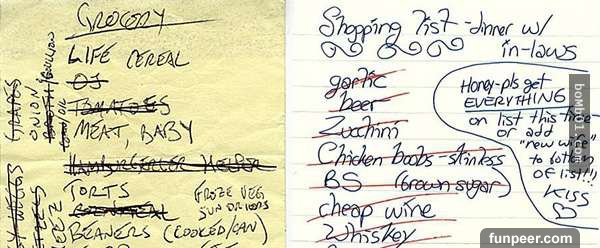 GROCERY
LIFE CEREAL
OJ
TOMATOES
MEAT, BABY
HAMBURGER HELPER
TORTS
FROZE VEG
SUN DRIOPS
OATMEAL
BEANERS (COOKED/CAN)
GRAPES
ONION
BROTH/BOUILLON
Shopping list - dinner w/
in-laws
garlic
beer
Zuchini
Chicken boobs - skinless
BS (brown sugar)
cheap wine
Whiskey
Honey-pls get
EVERYTHING
on list this time
or add
"new wife"
to bottom
of list!!!
KISS
bomb01.com
funpeer.com